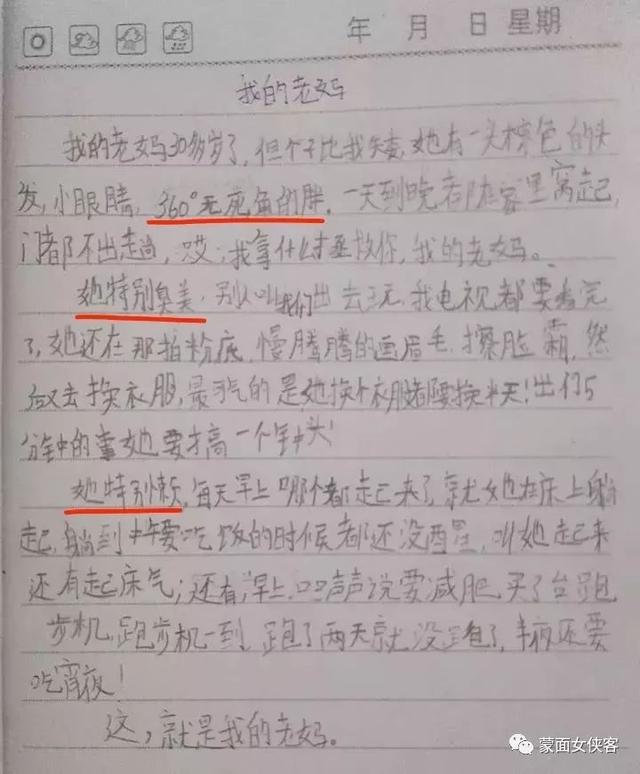 年 月 日 星期
我的老妈
我的老妈30多岁了，但个子比我矮，她有一头棕色的头
发，小眼睛，360°无死角的胖，一天到晚都在家里窝起，
门都不出趟，哎；我拿什么拯救你，我的老妈。
她特别臭美，别人叫我们出去玩，我电视都要看完
了，她还在那拍粉底，慢腾腾的画眉毛，擦脸霜，然
后又去换衣服，最可气的是她换个衣服都要换半天！出门5
分钟的事她要搞一个钟头！
她特别懒，每天早上哪个都起来了，就她在床上躺
起，躺到中午要吃饭的时候都还没醒，叫她起来
还有起床气；还有，早上口口声声说要减肥，买了台跑
步机，跑步机一到，跑了两天就没跑了，半夜还要
吃宵夜！
这，就是我的老妈。
蒙面女侠客